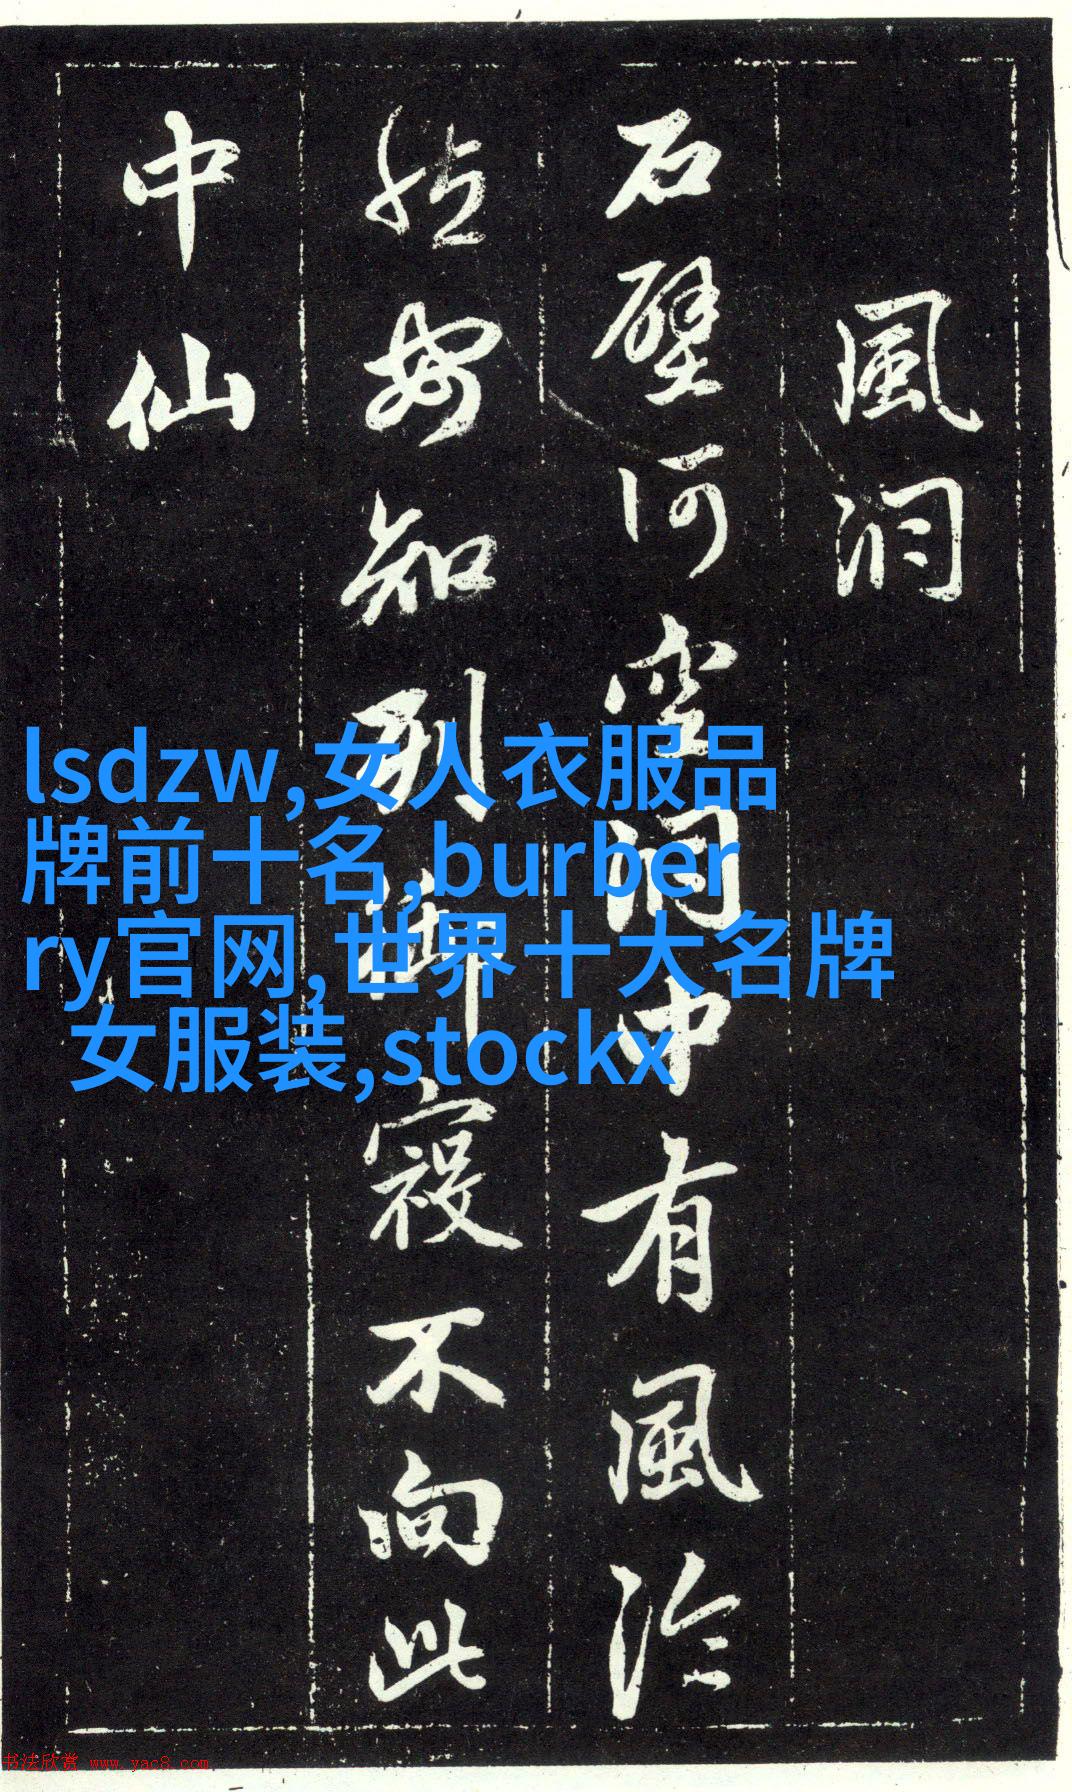 風洞
石壁何空洞中有風泠
然安知列御寇不向此
中仙
lsdzw,女人衣服品
牌前十名,burber
ry官网,世界十大名牌
女服装,stockx
书法欣赏 www.yac8.com